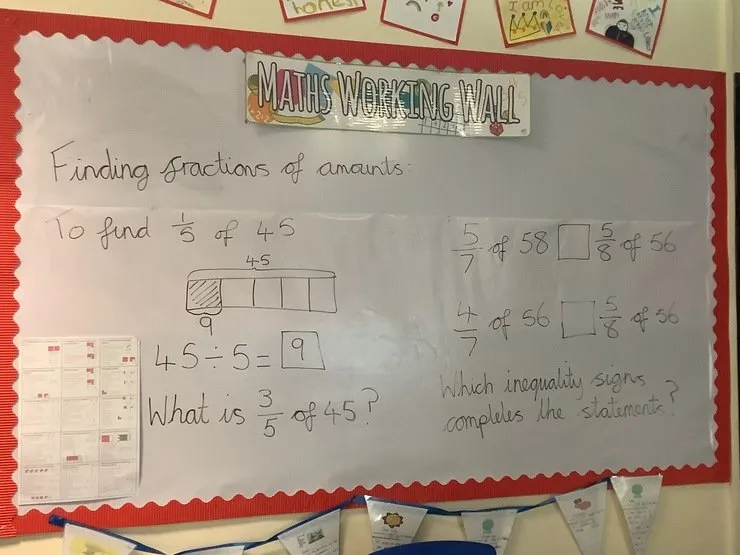 honest
I am
MATHS WORKING WALL
Finding fractions of amounts:
To find 1/5 of 45
45
9
45 ÷ 5 = 9
What is 3/5 of 45?
5/7 of 58 □ 5/8 of 56
4/7 of 56 □ 5/8 of 56
Which inequality signs
completes the statements?